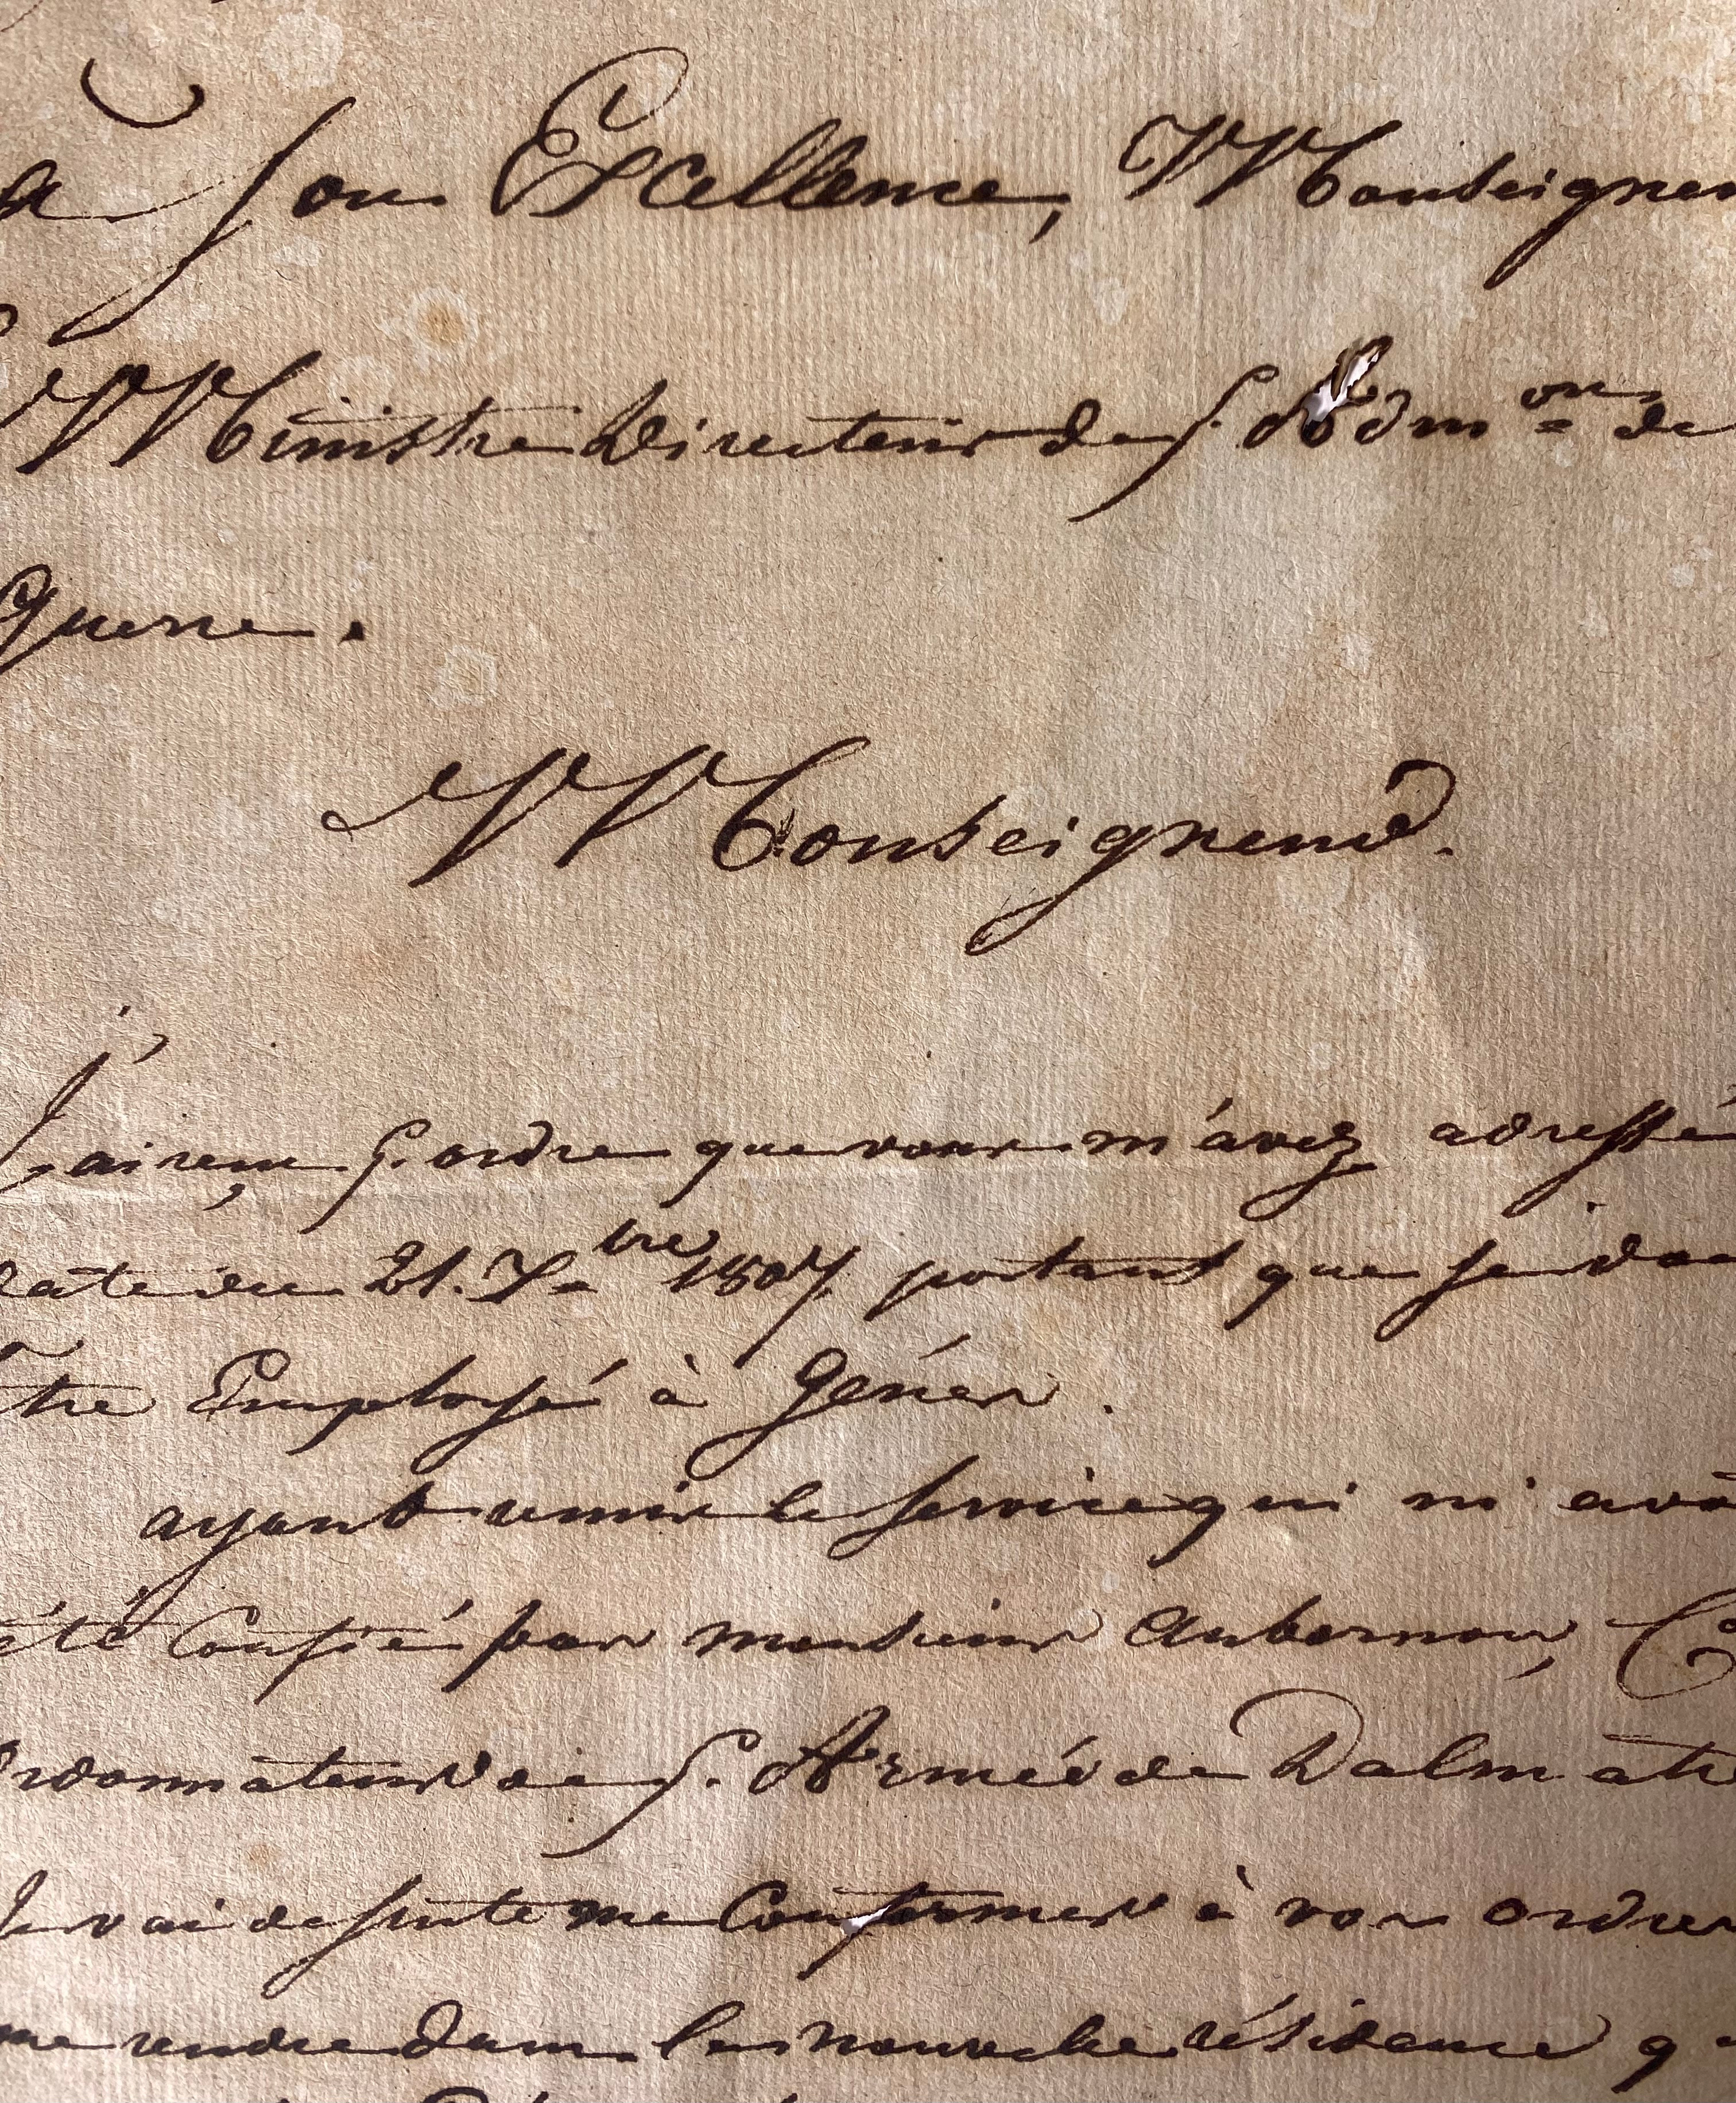 a Son Excellence, Monseigneu
Ministre Directeur de l'Adm.on de
Guerre.
Monseigneur.
J'ai reçu l'ordre que vous m'avez adressé
date du 21. 7.bre 1807. portant que je doi
tre Employé à Gênes.
ayant remis le service qui m'avoi
été Confié par monsieur Aubernon, C
rdonnateur de l'Armée de Dalmatie
Je vai de suite me Conformer à vos ordres
me rendre dans la nouvelle résidence q